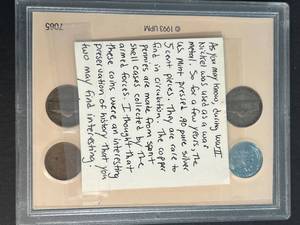 7065
© 1993 UPM
As you may know, during WWII
Nickel was used as a war
metal. So for a few years, The
US mint pressed 90 pure silver
5 cent pieces. They are rare to
find in circulation. The copper
pennies are made from spent
shell cases collected by the
armed forces. I thought that
these coins were an interesting
preservation of history that you
two may find interesting!